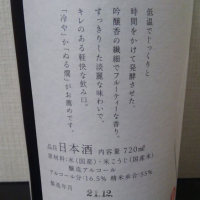 低温でじっくりと
時間をかけて発酵させた、
吟醸香の繊細でフルーティーな香り。
すっきりした淡麗な味わいで、
キレのある軽快な飲み口。
「冷や」か「ぬる燗」がお薦めです。
品目 日本酒 内容量 720ml
原材料:米(国産)・米こうじ(国産米)
醸造アルコール
アルコール分 16.5% 精米歩合 55%
製造年月
21.12